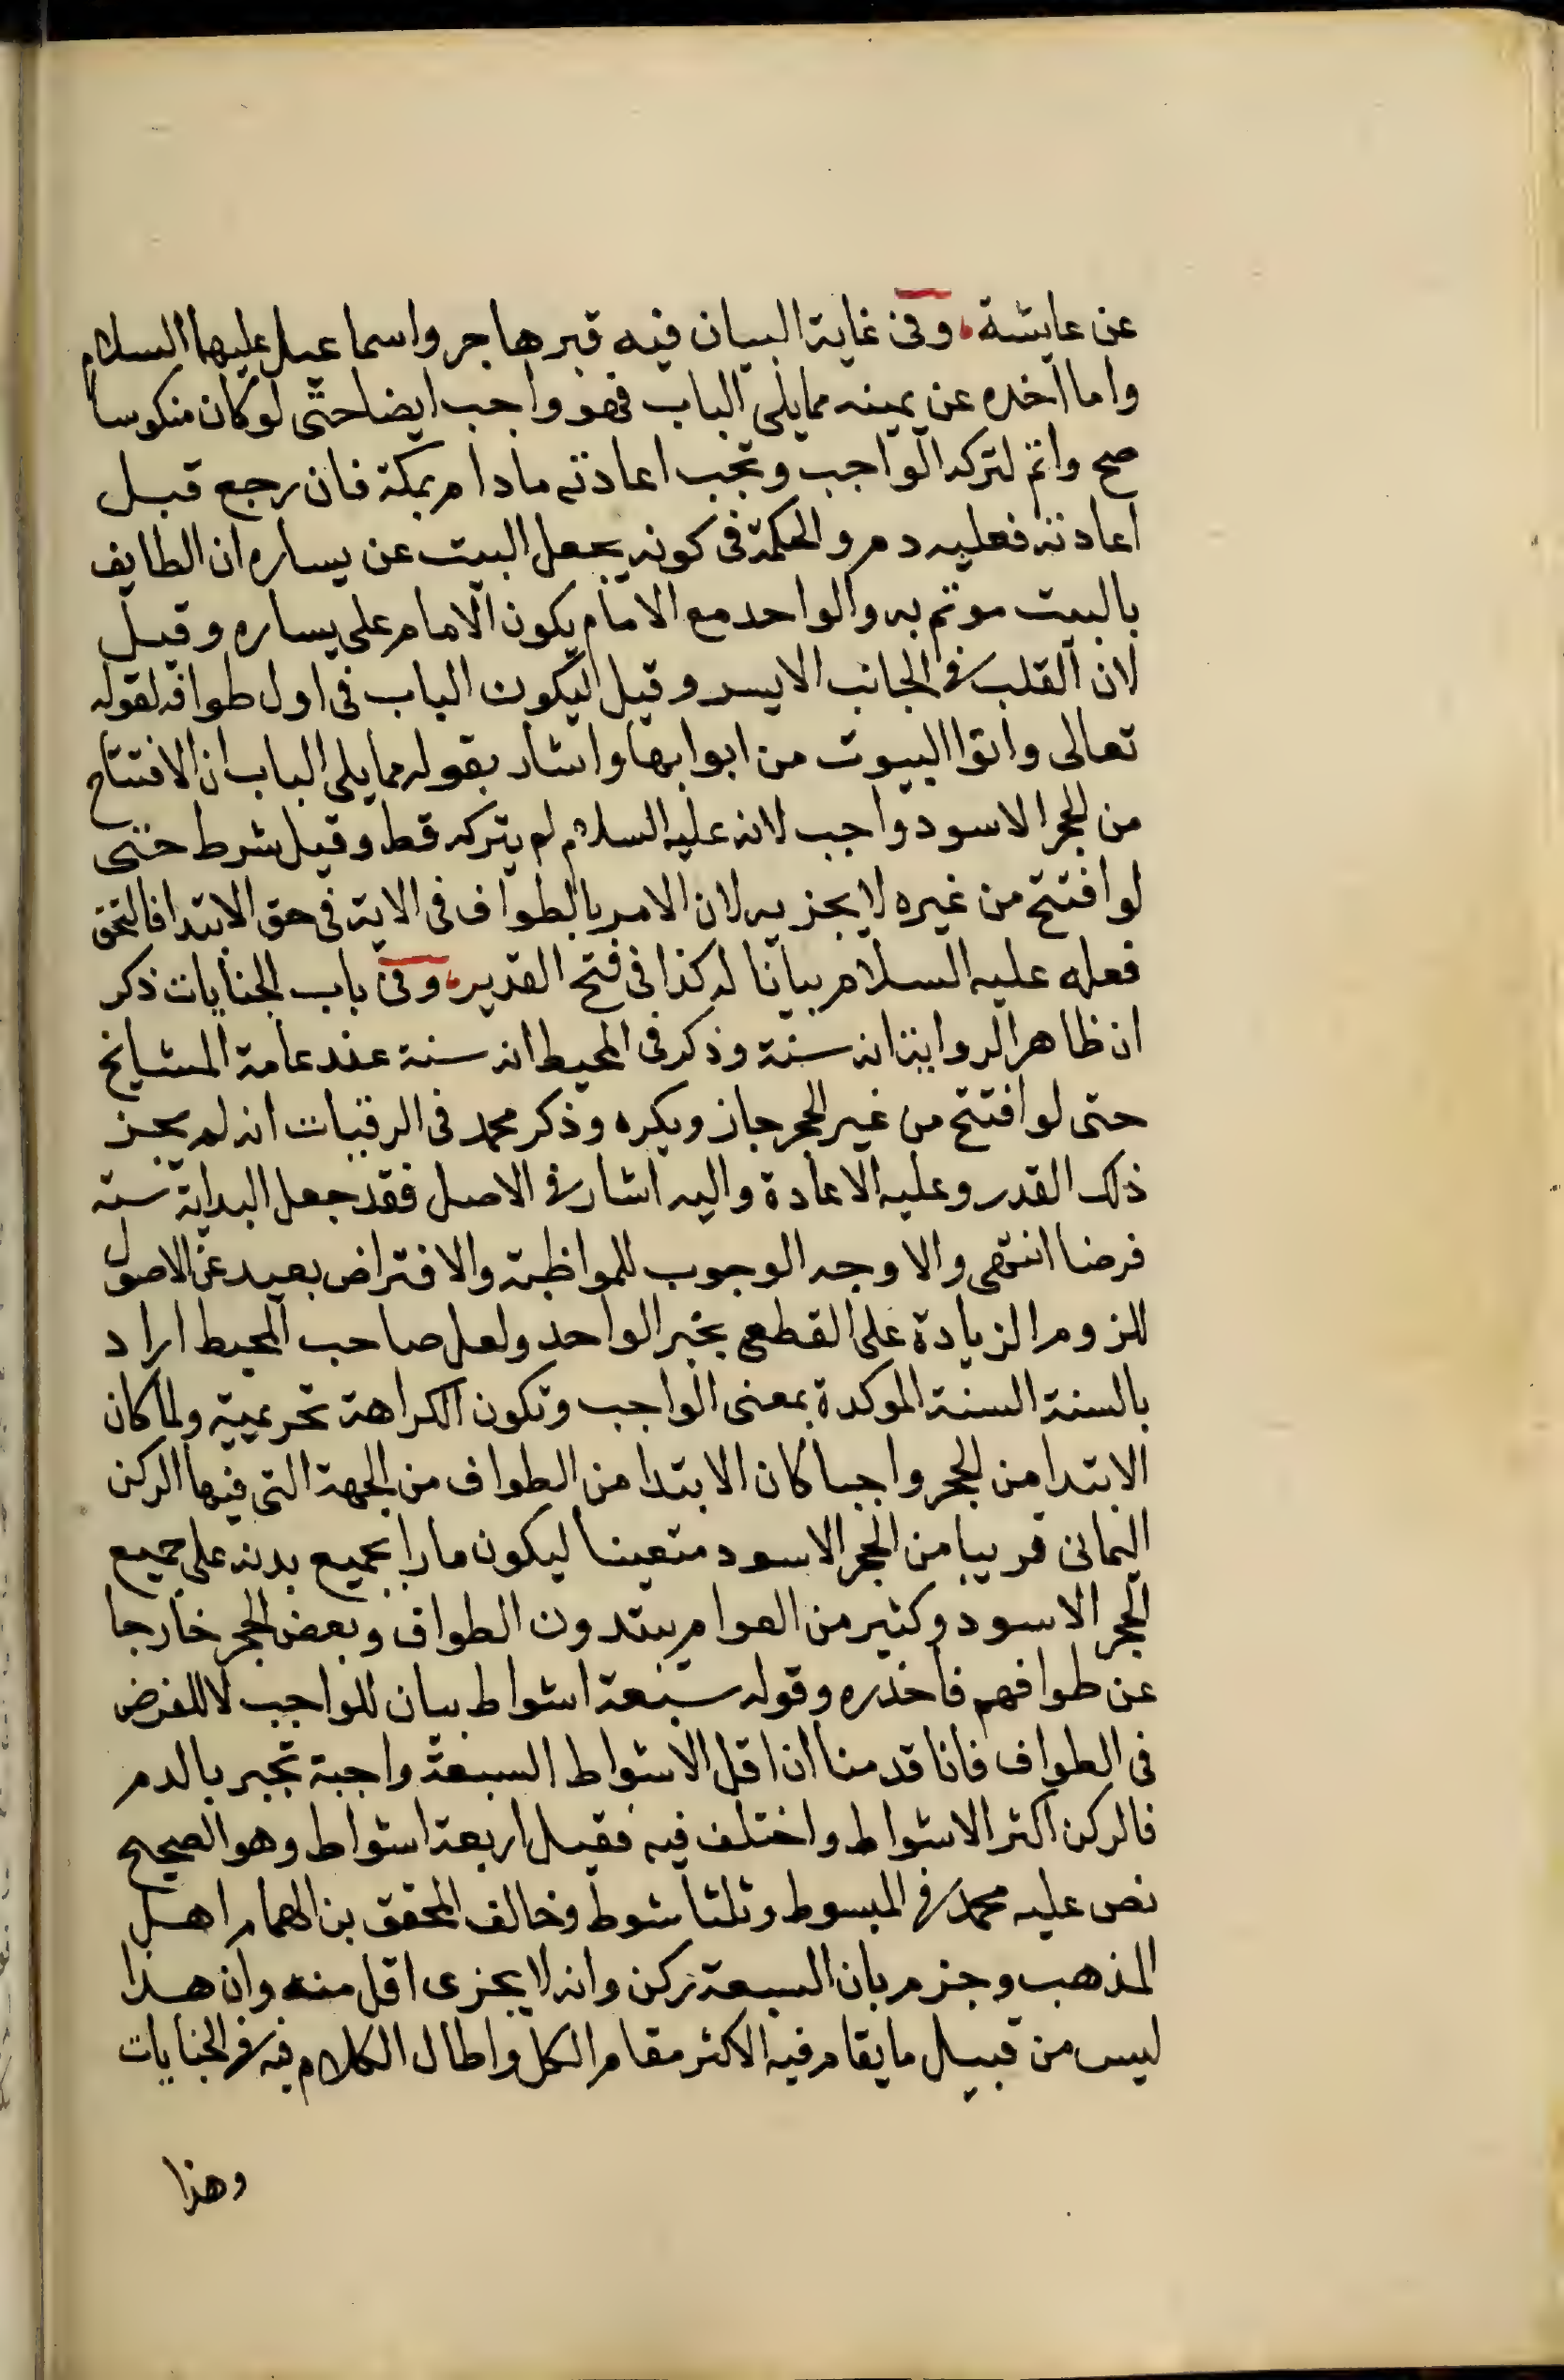 عن عايشة، وفى غاية البيان فيه قبر هاجر واسماعيل عليهما السلام
واما اخذه عن يمينه مما يلى الباب فهو واجب ايضا حتى لو كان منكوسا
صح واثم لتركه الواجب وتجب اعادته مادام بمكة فان رجع قبل
اعادته فعليه دم والحكمة فى كونه يجعل البيت عن يساره ان الطايف
بالبيت موتم به والواحد مع الامام يكون الامام على يساره وقيل
لان القلب فى الجانب الايسر وقيل ليكون الباب فى اول طوافه لقوله
تعالى واتوا البيوت من ابوابها واشار بقوله مما يلى الباب ان الافتتاح
من الحجر الاسود واجب لانه عليه السلام لم يتركه قط وقيل شرط حتى
لو افتتح من غيره لا يجزيه لان الامر بالطواف فى الاية فى حق الابتدا فالتحق
فعله عليه السلام بيانا له كذا فى فتح القدير، وفى باب الجنايات ذكر
ان ظاهر الرواية انه سنة وذكر فى المحيط انه سنة عند عامة المشايخ
حتى لو افتتح من غير الحجر جاز ويكره وذكر محمد فى الرقيات انه لم يجز
ذلك القدر وعليه الاعادة واليه اشار فى الاصل فقد جعل البداية سته
فرضا انتهى والاوجه الوجوب للمواظبة والافتراض بعيد عن الاصول
للزوم الزيادة على القطعى بخبر الواحد ولعل صاحب المحيط اراد
بالسنة السنة الموكدة بمعنى الواجب وتكون الكراهة تحريمية ولما كان
الابتدا من الحجر واجبا كان الابتدا من الطواف من الجهة التى فيها الركن
اليمانى قريبا من الحجر الاسود متعينا ليكون مارا بجميع بدنه على جميع
الحجر الاسود وكثير من العوام يبتدون الطواف وبعض الحجر خارجا
عن طوافهم فاحذره وقوله سبعة اشواط بيان للواجب لا للفرض
فى الطواف فانا قدمنا ان اقل الاشواط السبعة واجبة تجبر بالدم
فالركن اكثر الاشواط واختلف فيه فقيل اربعة اشواط وهو الصحيح
نص عليه محمد فى المبسوط وثلثا شوط وخالف المحقق بن الهمام اهل
المذهب وجزم بان السبعة ركن وانه لا يجزى اقل منه وان هذا
ليس من قبيل ما يقام فيه الاكثر مقام الكل واطال الكلام فيه فى الجنايات
وهذا